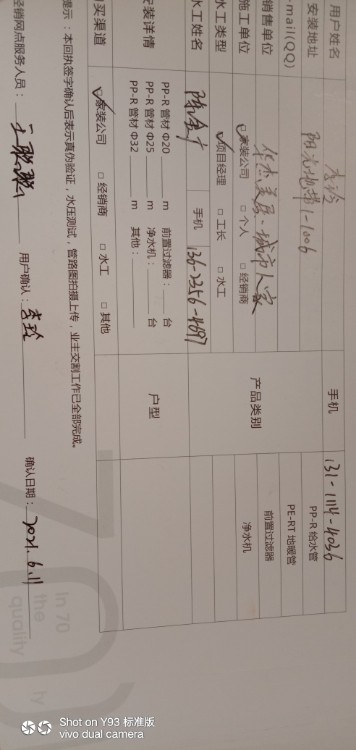 用户姓名
手机 131-1114-4036
安装地址 1-1006
-mail(QQ)
销售单位
施工单位 家装公司 □ 个人 □ 经销商
水工类型 项目经理 □ 工长 □ 水工
水工姓名 手机 136-2356-4897
产品类别
PP-R 给水管
PE-RT 地暖管
前置过滤器
净水机
安装详情
PP-R 管材 Φ20 ____ m 前置过滤器：____ 台
PP-R 管材 Φ25 ____ m 净水机：____ 台
PP-R 管材 Φ32 ____ m 其他：____
户型
购买渠道 家装公司 □ 经销商 □ 水工 □ 其他
提示：本回执签字确认后表示真伪验证，水压测试，管路图拍摄上传，业主交割工作已全部完成。
经销网点服务人员： 用户确认： 确认日期：2021.6.11
In 70
the
quality
Shot on Y93 标准版
vivo dual camera